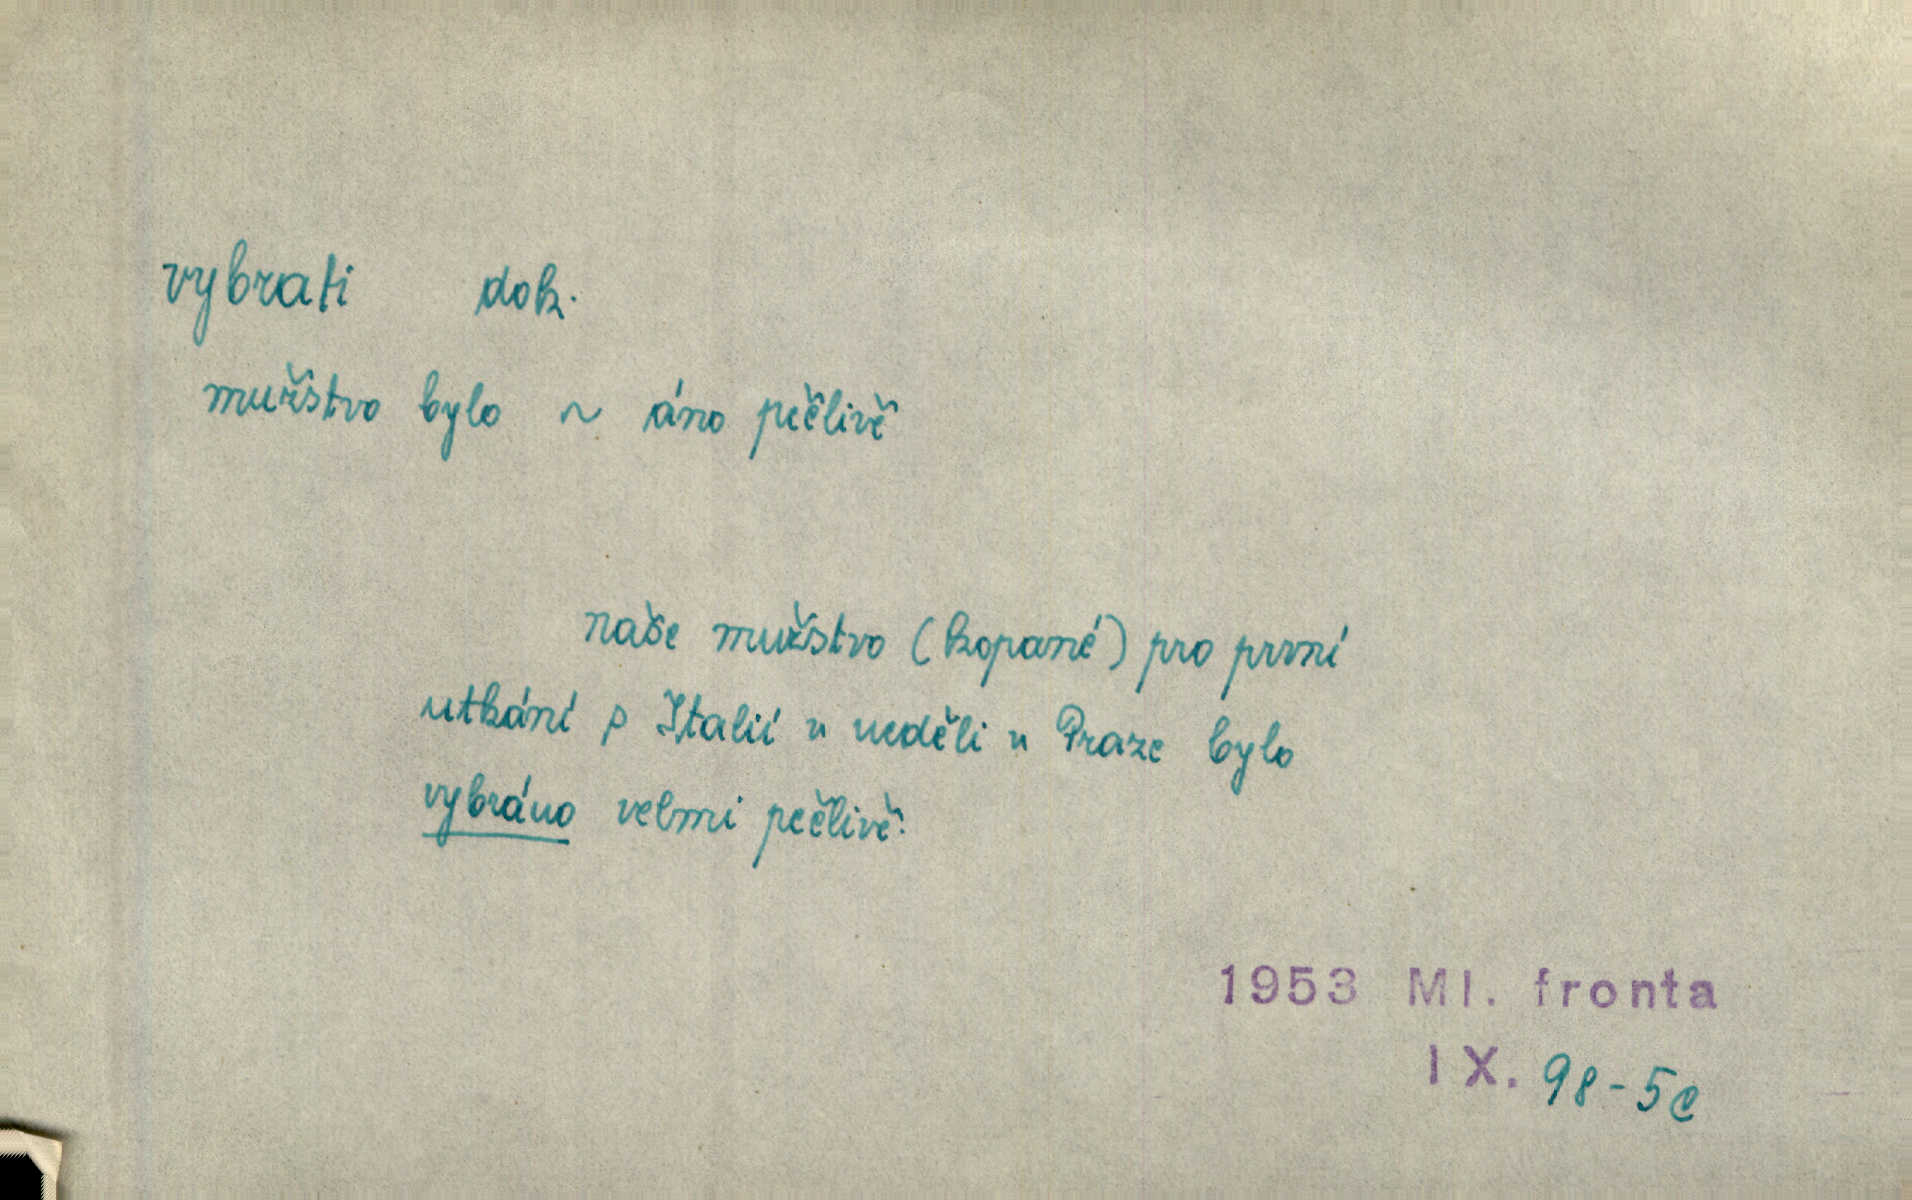 vybrati dok.
mužstvo bylo ~ áno pečlivě
naše mužstvo (kopané) pro první
utkání s Italií v neděli v Praze bylo
vybráno velmi pečlivě.
1953 Ml. fronta
IX. 98-5c